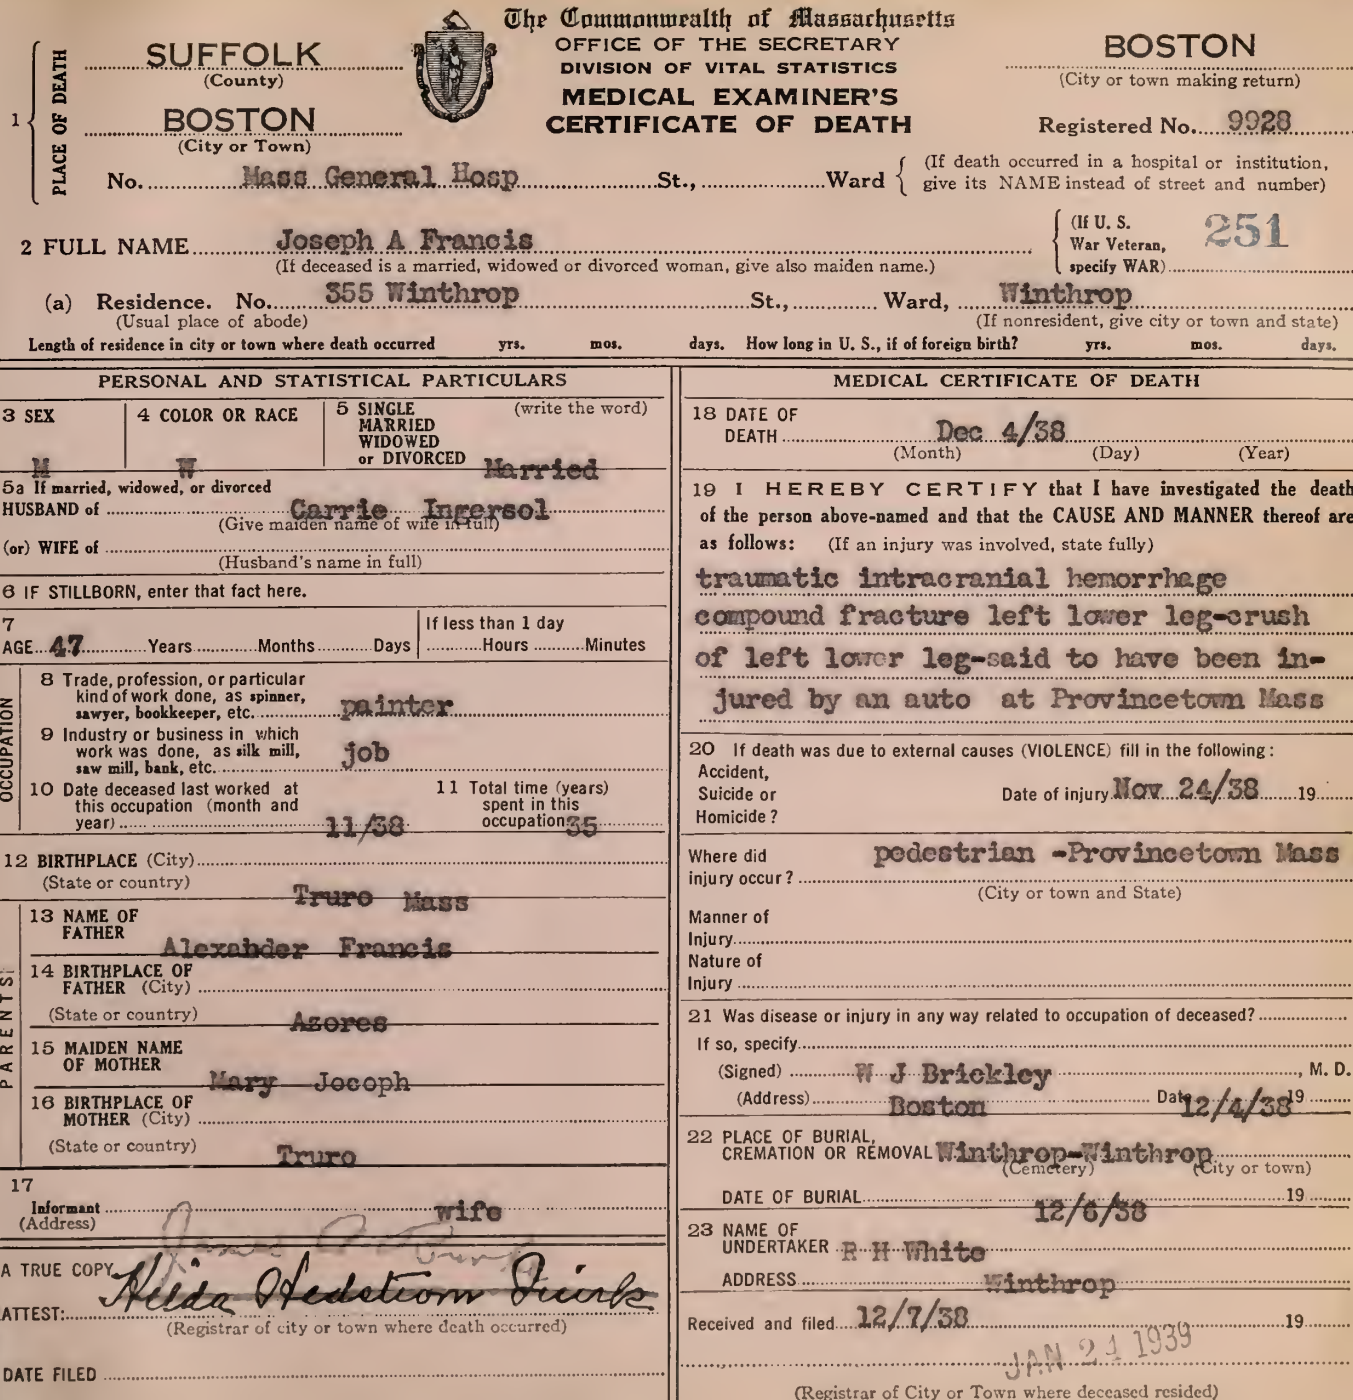 The Commonwealth of Massachusetts
OFFICE OF THE SECRETARY
DIVISION OF VITAL STATISTICS
MEDICAL EXAMINER'S
CERTIFICATE OF DEATH
1 PLACE OF DEATH
SUFFOLK
(County)
BOSTON
(City or Town)
BOSTON
(City or town making return)
Registered No. 9928
No. Mass General Hosp St., Ward (If death occurred in a hospital or institution, give its NAME instead of street and number)
2 FULL NAME Joseph A Francis
(If deceased is a married, widowed or divorced woman, give also maiden name.)
(If U. S.
War Veteran,
specify WAR)
251
(a) Residence. No. 355 Winthrop St., Ward, Winthrop
(Usual place of abode) (If nonresident, give city or town and state)
Length of residence in city or town where death occurred yrs. mos. days. How long in U. S., if of foreign birth? yrs. mos. days.
PERSONAL AND STATISTICAL PARTICULARS
3 SEX
M
4 COLOR OR RACE
W
5 SINGLE (write the word)
MARRIED
WIDOWED
or DIVORCED Married
5a If married, widowed, or divorced
HUSBAND of Carrie Ingersol
(Give maiden name of wife in full)
(or) WIFE of
(Husband's name in full)
6 IF STILLBORN, enter that fact here.
7
AGE 47 Years Months Days
If less than 1 day
Hours Minutes
OCCUPATION
8 Trade, profession, or particular
kind of work done, as spinner,
sawyer, bookkeeper, etc. painter
9 Industry or business in which
work was done, as silk mill,
saw mill, bank, etc. job
10 Date deceased last worked at
this occupation (month and
year) 11/38
11 Total time (years)
spent in this
occupation 35
12 BIRTHPLACE (City)
(State or country)
Truro Mass
PARENTS
13 NAME OF
FATHER
Alexahder Francis
14 BIRTHPLACE OF
FATHER (City)
(State or country)
Azores
15 MAIDEN NAME
OF MOTHER
Mary Jocoph
16 BIRTHPLACE OF
MOTHER (City)
(State or country)
Truro
17
Informant wife
(Address)
A TRUE COPY
ATTEST: Hilda Hedstrom Quirk
(Registrar of city or town where death occurred)
DATE FILED
MEDICAL CERTIFICATE OF DEATH
18 DATE OF
DEATH Dec 4/38
(Month) (Day) (Year)
19 I HEREBY CERTIFY that I have investigated the death
of the person above-named and that the CAUSE AND MANNER thereof are
as follows: (If an injury was involved, state fully)
traumatic intracranial hemorrhage
compound fracture left lower leg-crush
of left lower leg-said to have been in-
jured by an auto at Provincetown Mass
20 If death was due to external causes (VIOLENCE) fill in the following:
Accident,
Suicide or Date of injury Nov 24/38 19
Homicide?
Where did pedestrian -Provincetown Mass
injury occur?
(City or town and State)
Manner of
Injury
Nature of
Injury
21 Was disease or injury in any way related to occupation of deceased?
If so, specify
(Signed) W J Brickley, M. D.
(Address) Boston Date 12/4/38 19
22 PLACE OF BURIAL,
CREMATION OR REMOVAL Winthrop-Winthrop
(Cemetery) (City or town)
DATE OF BURIAL 12/6/38 19
23 NAME OF
UNDERTAKER R H White
ADDRESS Winthrop
Received and filed 12/7/38 19
JAN 24 1939
(Registrar of City or Town where deceased resided)